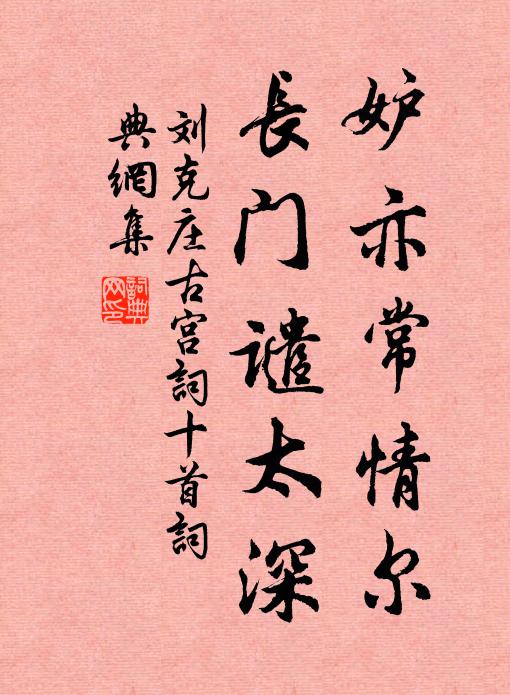 妒亦常情尔
長门譴太深
刘克庄古宫詞十首詞
典網集
詞典
网印